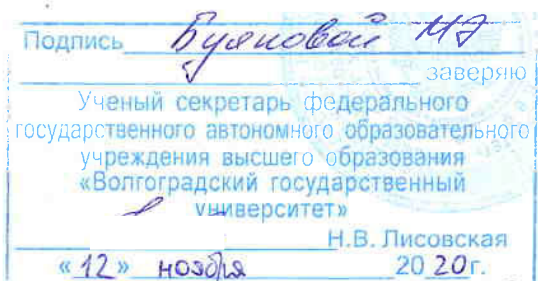 Подпись Буяновой МЭ
заверяю
Ученый секретарь федерального
государственного автономного образовательного
учреждения высшего образования
«Волгоградский государственный
университет»
Н.В. Лисовская
«12» ноября 2020г.